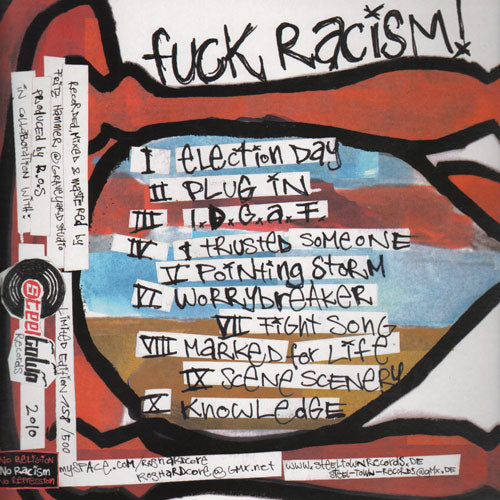 fuck Racism!
I Election Day
II Plug in
III I.D.G.a.F.
IV I trusted someone
V Pointing Storm
VI Worrybreaker
VII Fight Song
VIII Marked for Life
IX Scene Scenery
X Knowledge
Recorded, Mixed & Mastered by
Fritz Hammer @ Graveyard Studio
Produced by R.O.S
in collaboration with:
Steeltown
Records
2010
Limited Edition /158 /500
No Religion
No Racism
No Repression
myspace.com/roshardcore
Roshardcore@gmx.net
www.steeltownrecords.de
steel-town-records@gmx.de